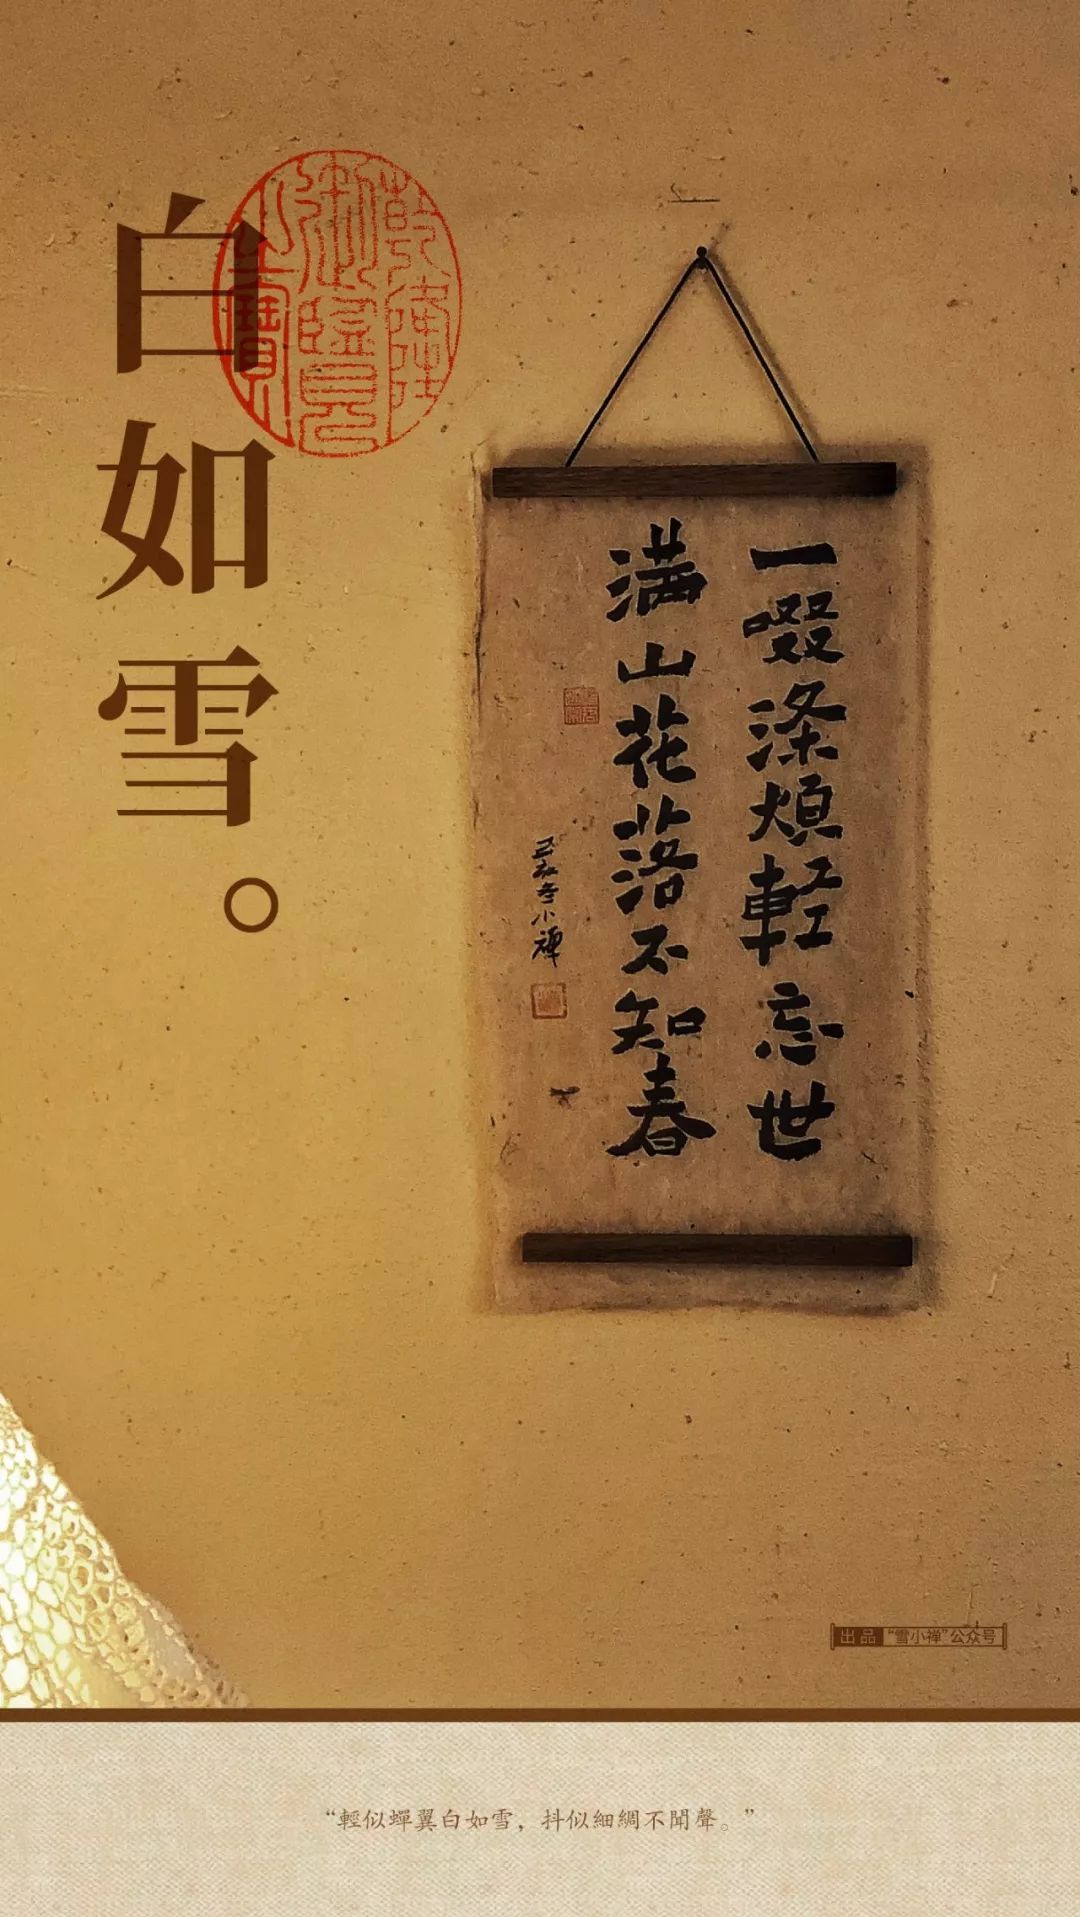 白如雪。
乾隆御覽之寶
一啜涤煩輕忘世
满山花落不知春
己亥冬小禅
出品 “雪小禅”公众号
“輕似蟬翼白如雪，抖似細綢不聞聲。”